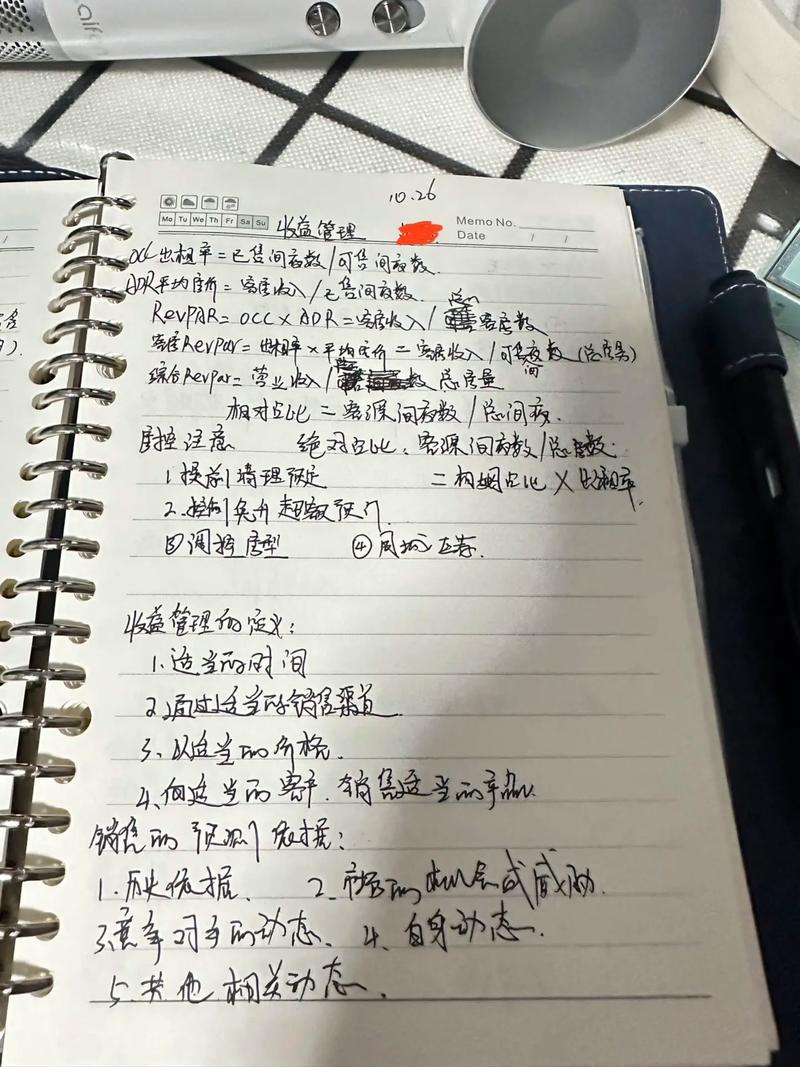 aifa
10.26
Mo Tu We Th Fr Sa Su
收益管理
Memo No.
Date / /
OCC出租率=已售间夜数/可售间夜数
ADR平均房价=客房收入/已售间夜数
RevPAR=OCC×ADR=客房收入/总客房数
客房RevPar=出租率×平均房价=客房收入/可售间夜数(总房类)
综合RevPar=营业收入/总房量
相对占比=客源间夜数/总间夜
房控注意 绝对占比:客源间夜数/总房数
1.提前清理预定 =相对占比×出租率
2.控制免升超额预订
③调控房型 ④
收益管理的定义:
1.适当的时间
2.通过适当的销售渠道
3、以适当的价格
4、向适当的客户.销售适当的产品
销售的预测依据:
1.历史依据、 2、市场的机会或威胁.
3.竞争对手的动态、4、自身动态.
5.其他相关动态.